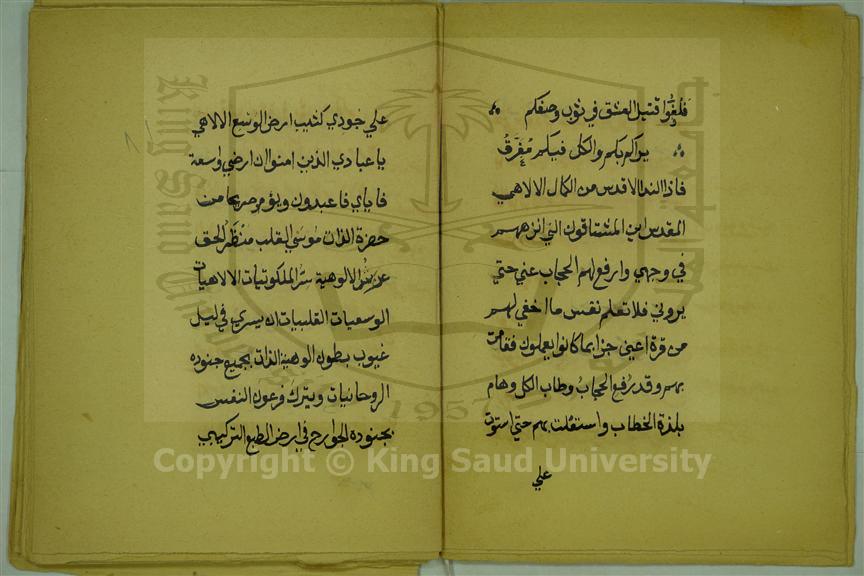 فلفوا قتيل العشق في ثوب وصفكم
يراكم بكم والكل فيكم مفرق
فاذا الندا الاقدس من الكمال الالاهي
المقدس اين المشتاقون الي انزههم
في وجهي وارفع لهم الحجاب عني حتي
يروني فلا تعلم نفس ما اخفي لهم
من قرة اعين جزا بما كانوا يعملون فقامت
بهم وقد رفع الحجاب وطاب الكل وهام
بلذة الخطاب واستقلت بهم حتي استوت
علي
علي جودي كثيب ارض الوسع الالاهي
يا عبادي الذين امنوا ان ارضي واسعة
فاياي فاعبدون ويؤمر صريحا من
حضرة الذات موسي القلب منظر الحق
عرش الالوهية سر الملكوتيات الالاهيات
الوسعيات القلبيات ان يسري في ليل
غيوب بطون الوهية الذات بجميع جنوده
الروحانيات ويترك فرعون النفس
بجنوده الجوارح في ارض الطبع التركيبي
King Saud University
1957
Copyright © King Saud University